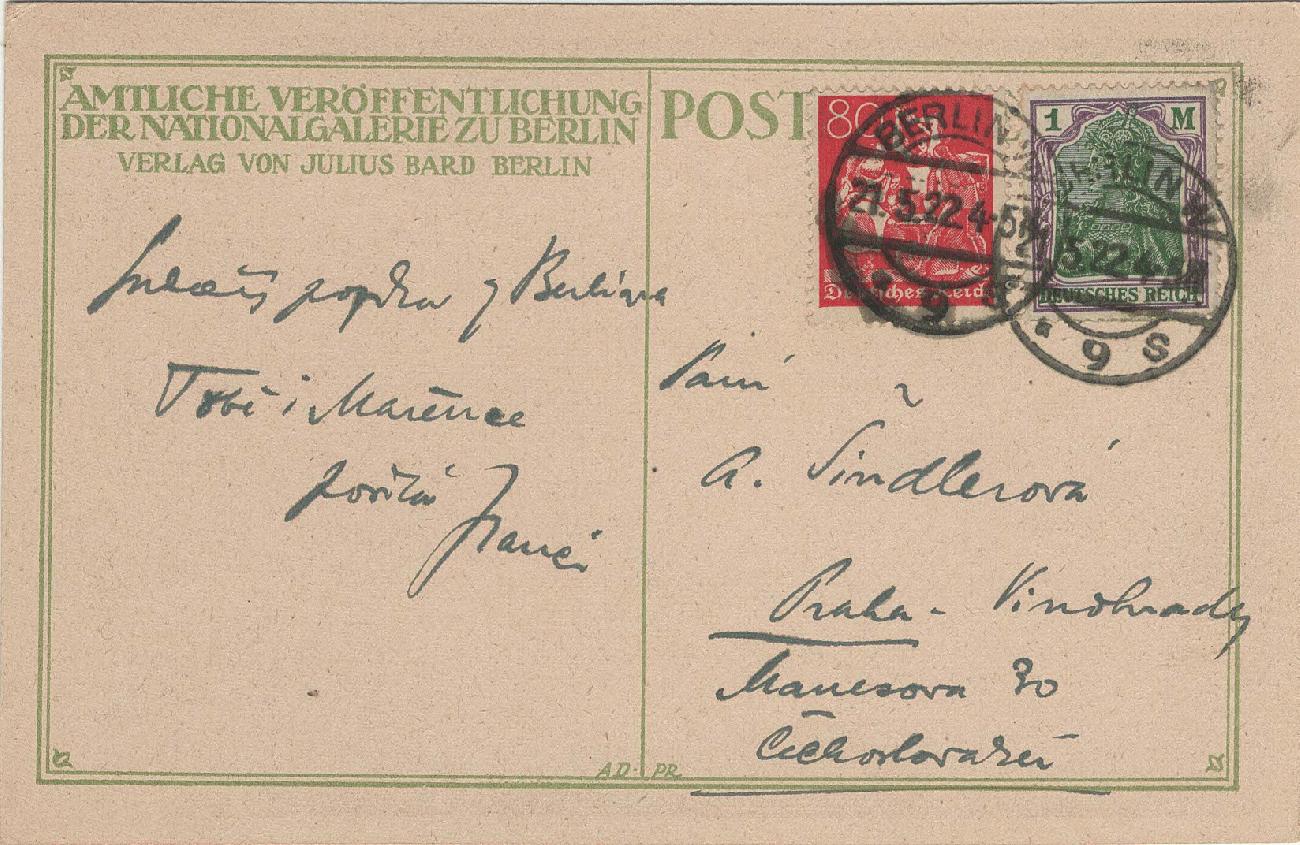 AMTLICHE VERÖFFENTLICHUNG
DER NATIONALGALERIE ZU BERLIN
VERLAG VON JULIUS BARD BERLIN
POST
80
Deutsches Reich
1 M
DEUTSCHES REICH
BERLIN
21.5.22 4-5N
* 9 s
BERLIN W
5.22.4-5N
* 9 s
z Berlína
Tobě i Mařence
posílá
Paní
A. Šindlerová
Praha - Vinohrady
Manesova 30
Čechoslovakei
AD. PR.